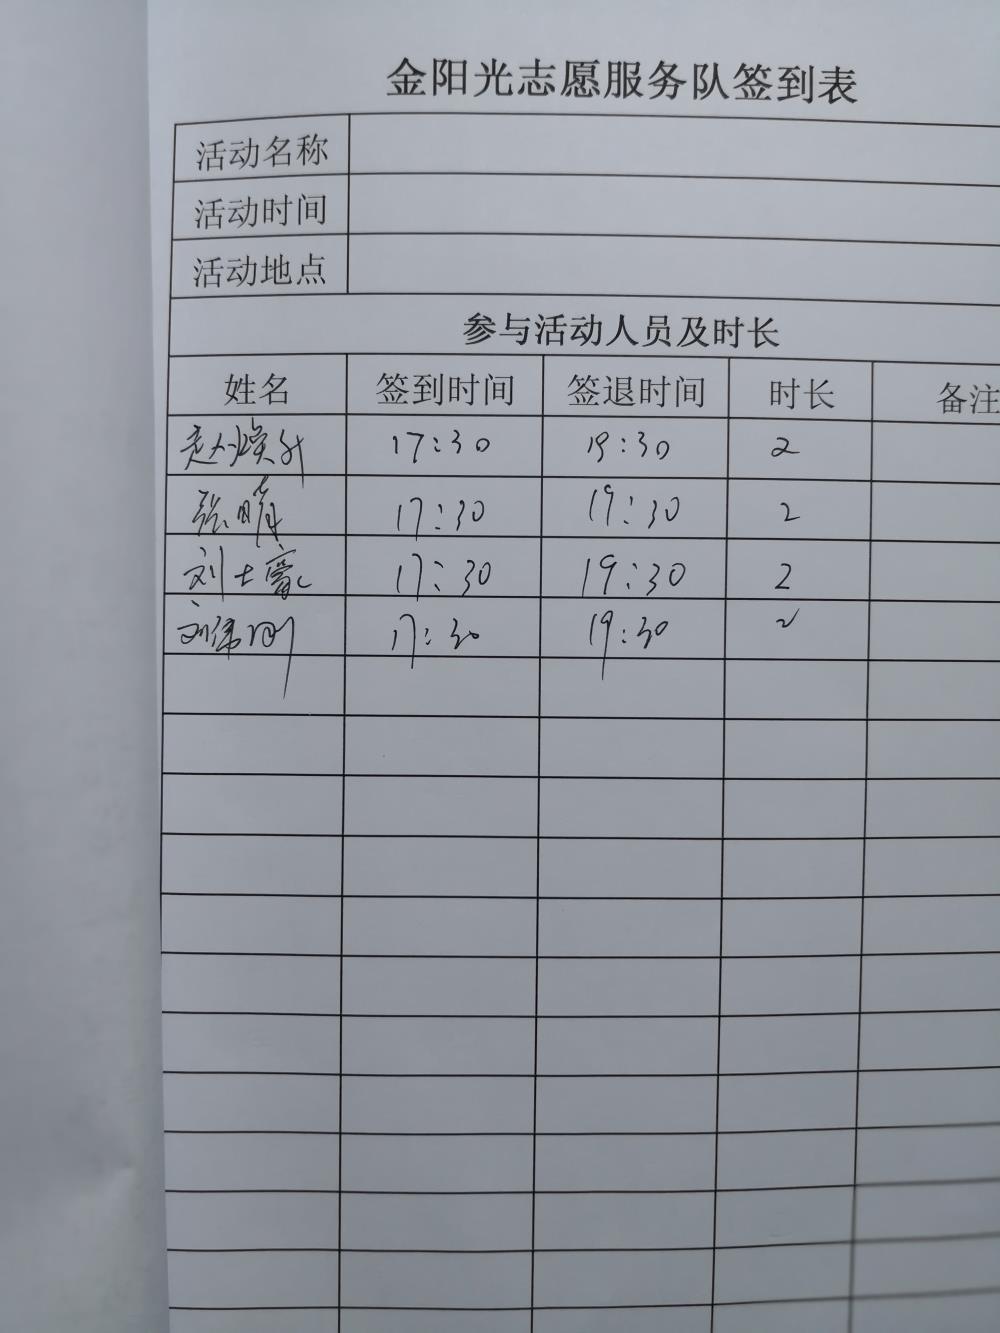 金阳光志愿服务队签到表
活动名称
活动时间
活动地点
参与活动人员及时长
姓名 签到时间 签退时间 时长 备注
赵焕升 17:30 19:30 2
张晴 17:30 19:30 2
刘士豪 17:30 19:30 2
刘伟刚 17:30 19:30 2